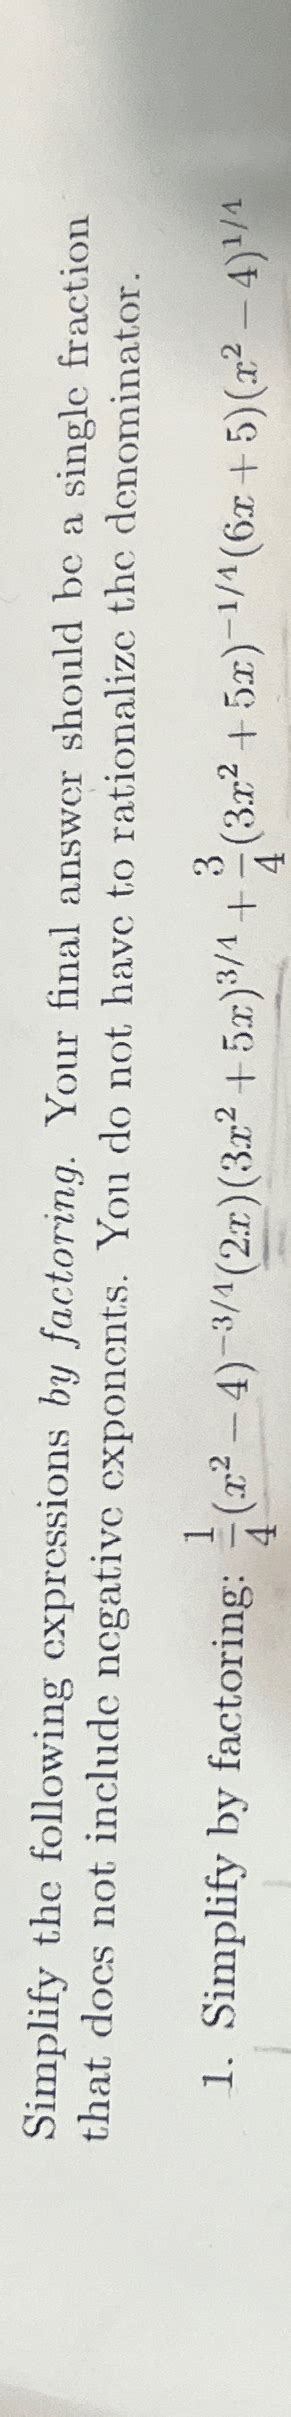 Simplify the following expressions by factoring. Your final answer should be a single fraction
that does not include negative exponents. You do not have to rationalize the denominator.
1. Simplify by factoring: \frac{1}{4}(x^2 - 4)^{-3/4}(2x)(3x^2 + 5x)^{3/4} + \frac{3}{4}(3x^2 + 5x)^{-1/4}(6x + 5)(x^2 - 4)^{1/4}